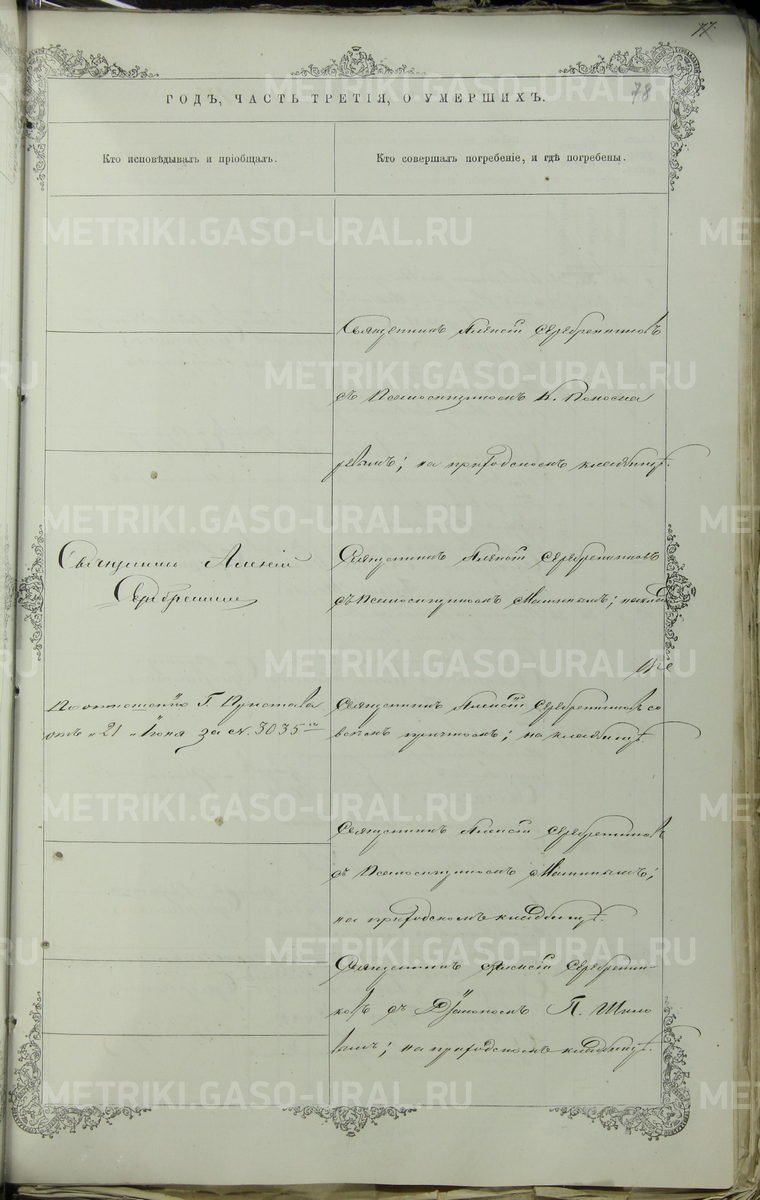 77.
78
ГОДЪ, ЧАСТЬ ТРЕТІЯ, О УМЕРШИХЪ.
Кто исповѣдывалъ и пріобщалъ.
Кто совершалъ погребеніе, и гдѣ погребены.
Священникъ Алексій Серебренниковъ
съ Псаломщикомъ К. Понома
ревымъ; на приходскомъ кладбищѣ.
Священникъ Алексій
Серебренник
Священникъ Алексій Серебренниковъ
съ Псаломщикомъ; на клад
бище
По отношенію Г. Пристава
отъ "21" Іюня за № 3035
Священникъ Алексій Серебренниковъ со
всѣмъ причтомъ; на кладбищѣ.
Священникъ Алексій Серебренниковъ
съ Псаломщикомъ
на приходскомъ кладбищѣ.
Священникъ Алексій Серебренни-
ковъ съ Діакономъ П. Шило
вымъ; на приходскомъ кладбищѣ.
METRIKI.GASO-URAL.RU